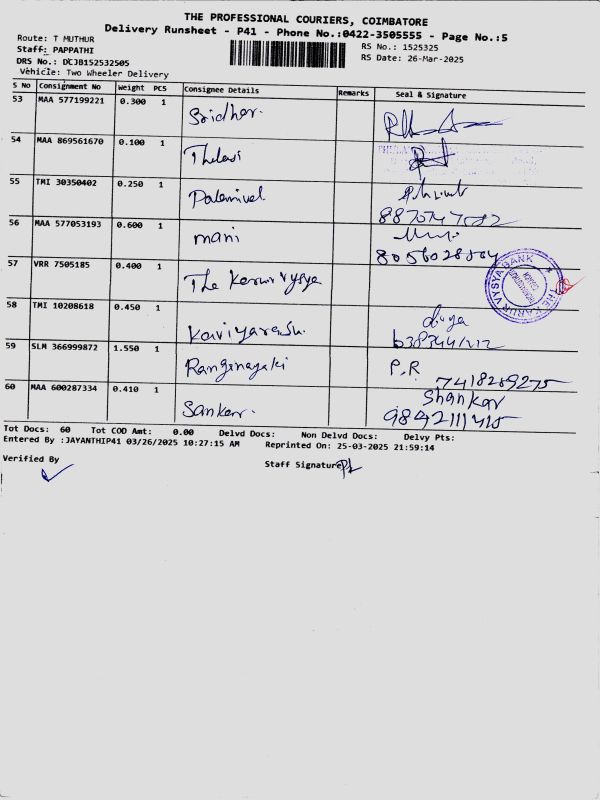 THE PROFESSIONAL COURIERS, COIMBATORE
Delivery Runsheet - P41 - Phone No.:0422-3505555 - Page No.:5
Route: T MUTHUR
RS No.: 1525325
Staff: PAPPATHI
RS Date: 26-Mar-2025
DRS No.: DCJB152532505
Vehicle: Two Wheeler Delivery
S No Consignment No Weight PCS Consignee Details Remarks Seal & Signature
53 MAA 577199221 0.300 1 Sridhar.
54 MAA 869561670 0.100 1 Thulasi
55 TMI 30350402 0.250 1 Palanivel
56 MAA 577053193 0.600 1 mani
8056028504
57 VRR 7505185 0.400 1 The Karur Vysya
THE KARUR VYSYA BANK
58 TMI 10208618 0.450 1 Kaviyarasu.
59 SLM 366999872 1.550 1 Ranganayaki P.R
7418289275
60 MAA 600287334 0.410 1 Sankar. Shankar
9842111415
Tot Docs: 60 Tot COD Amt: 0.00 Delvd Docs: Non Delvd Docs: Delvy Pts:
Entered By :JAYANTHIP41 03/26/2025 10:27:15 AM Reprinted On: 25-03-2025 21:59:14
Verified By
Staff Signature